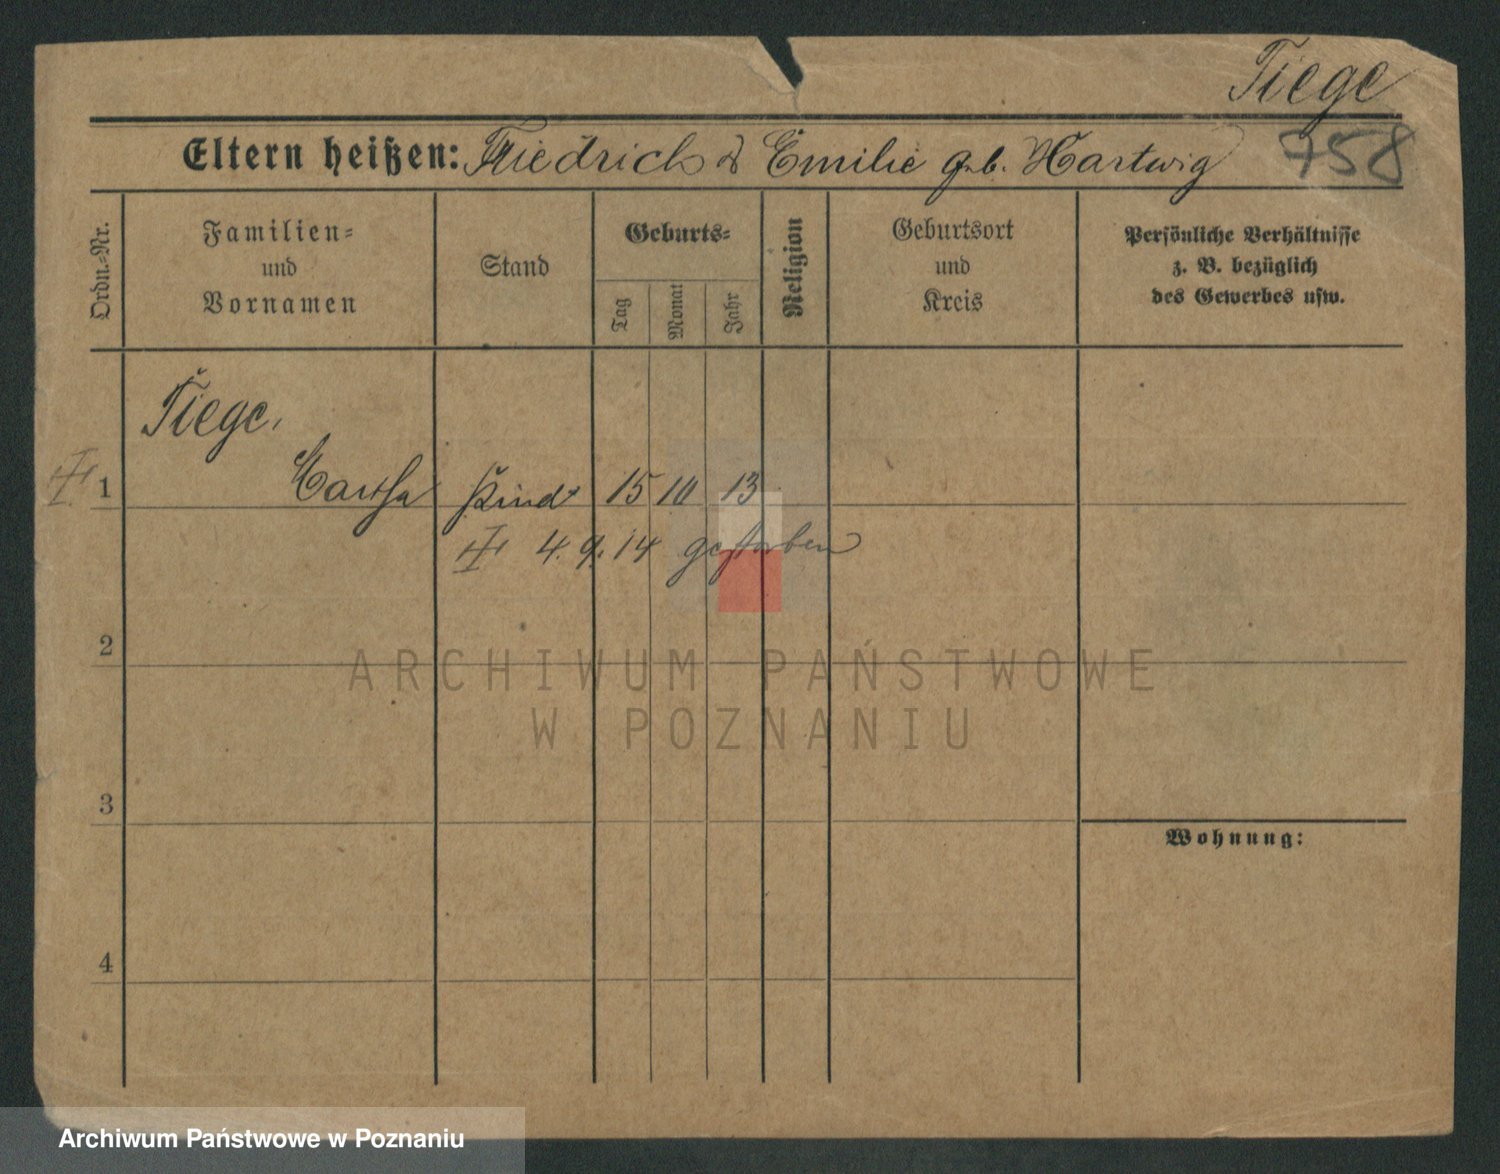 Tiege
758
Eltern heißen: Friedrich & Emilie geb. Hartwig
Ordn.-Nr.
Familien-
und
Vornamen
Stand
Geburts-
Tag
Monat
Jahr
Religion
Geburtsort
und
Kreis
Persönliche Verhältnisse
z. B. bezüglich
des Gewerbes usw.
Tiege,
1 Martha Kind 15 10 13
4. 9. 14 gestorben
2
ARCHIWUM PAŃSTWOWE
W POZNANIU
3
Wohnung:
4
Archiwum Państwowe w Poznaniu